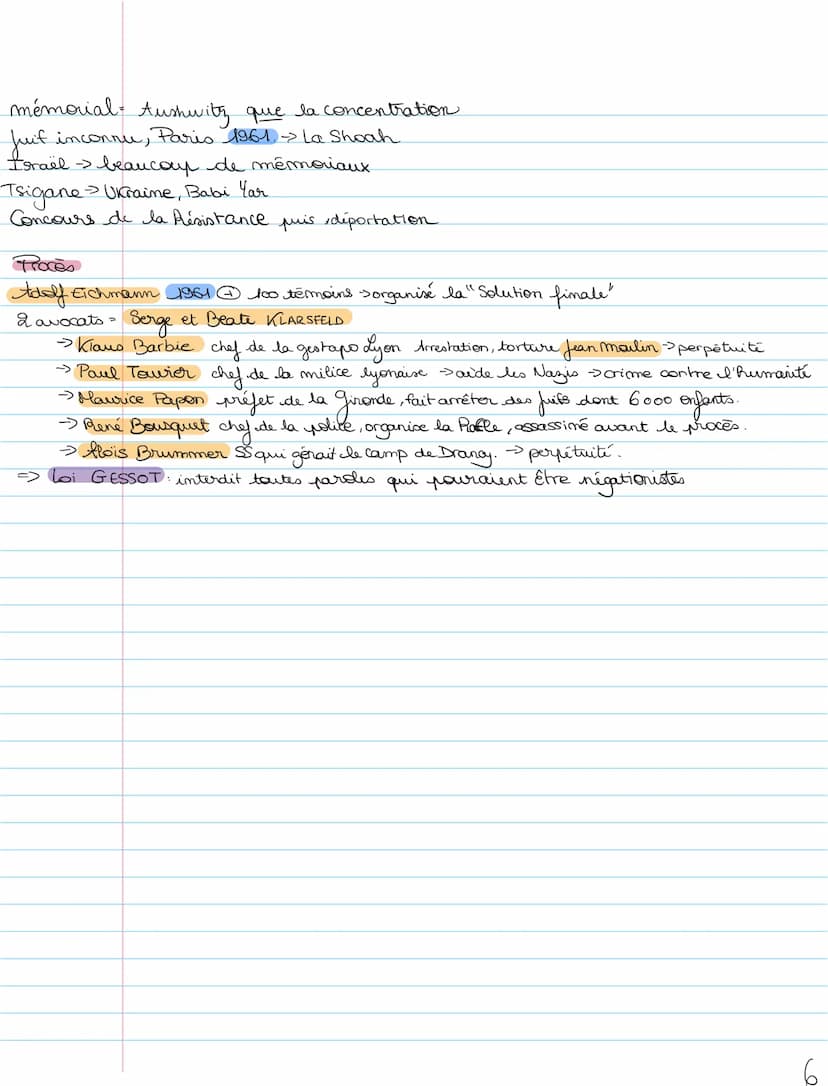 mémorial = Aushwitz que la concentration
Juif inconnu, Paris 1961 -> La Shoah
Israël -> beaucoup de mémoriaux
Tsigane -> Ukraine, Babi Yar
Concours de la Résistance puis déportation
Procès
Adolf Eichmann 1961 + 100 témoins -> organisé la "Solution finale"
2 avocats = Serge et Beate KLARSFELD
-> Klaus Barbie chef de la gestapo Lyon Arrestation, torture Jean Moulin -> perpétuité
-> Paul Touvier chef de la milice lyonaise -> aide les Nazis -> crime contre l'humanité
-> Maurice Papon préfet de la Gironde, fait arrêter des juifs dont 6000 enfants.
-> René Bousquet chef de la police, organise la Rafle, assassiné avant le procès.
-> Aloïs Brummer SS qui gérait le camp de Drancy. -> perpétuité.
=> Loi GESSOT : interdit toutes paroles qui pouraient être négationistes
6